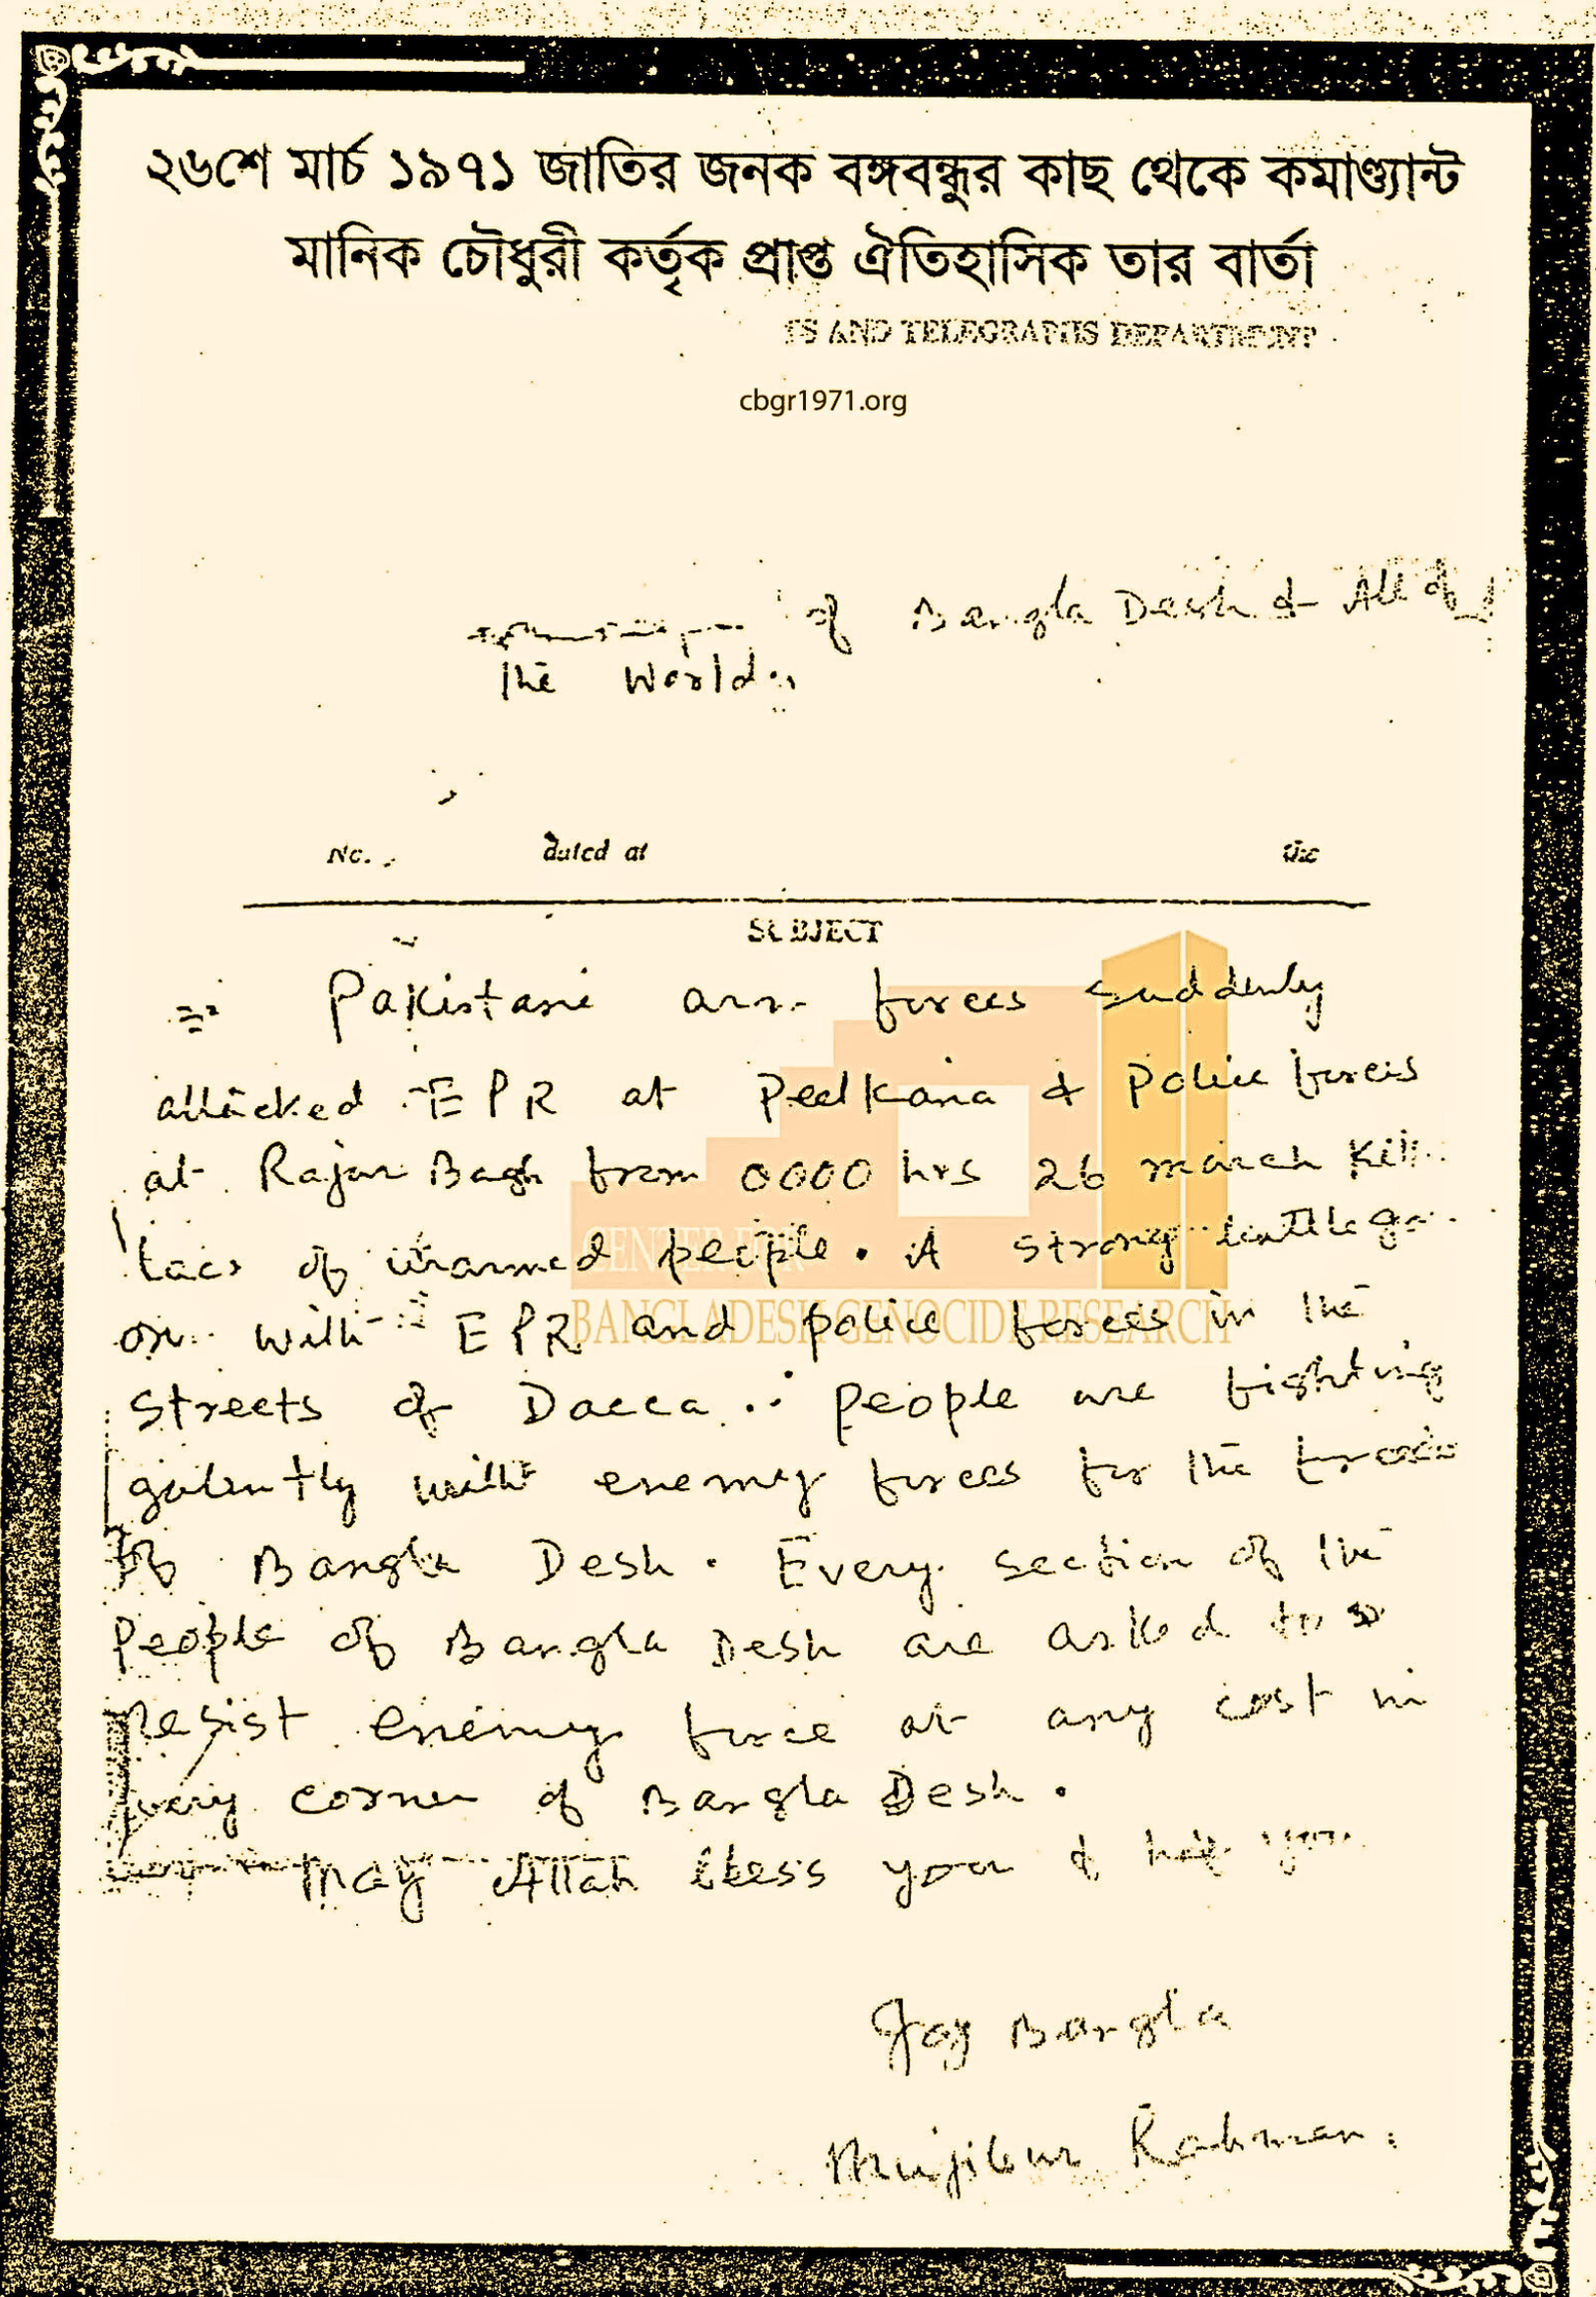 ২৬শে মার্চ ১৯৭১ জাতির জনক বঙ্গবন্ধুর কাছ থেকে কমাণ্ড্যান্ট
মানিক চৌধুরী কর্তৃক প্রাপ্ত ঐতিহাসিক তার বার্তা
TS AND TELEGRAPHS DEPARTMENT
cbgr1971.org
of Bangla Desh & All of
the World
No. dated at the
SUBJECT
Pakistani arm forces suddenly
attacked EPR at Peelkana & Police forces
at Rajar Bagh from 0000 hrs 26 march
lacs of unarmed people. A strong battle
on with EPR and police forces in the
CENTER FOR
BANGLADESH GENOCIDE RESEARCH
streets of Dacca. people are fighting
galently with enemy forces for the
of Bangla Desh. Every section of the
people of Bangla Desh are asked to
resist enemy force at any cost in
every corner of Bangla Desh.
May Allah bless you &
Joy Bangla
Mujibur Rahman.